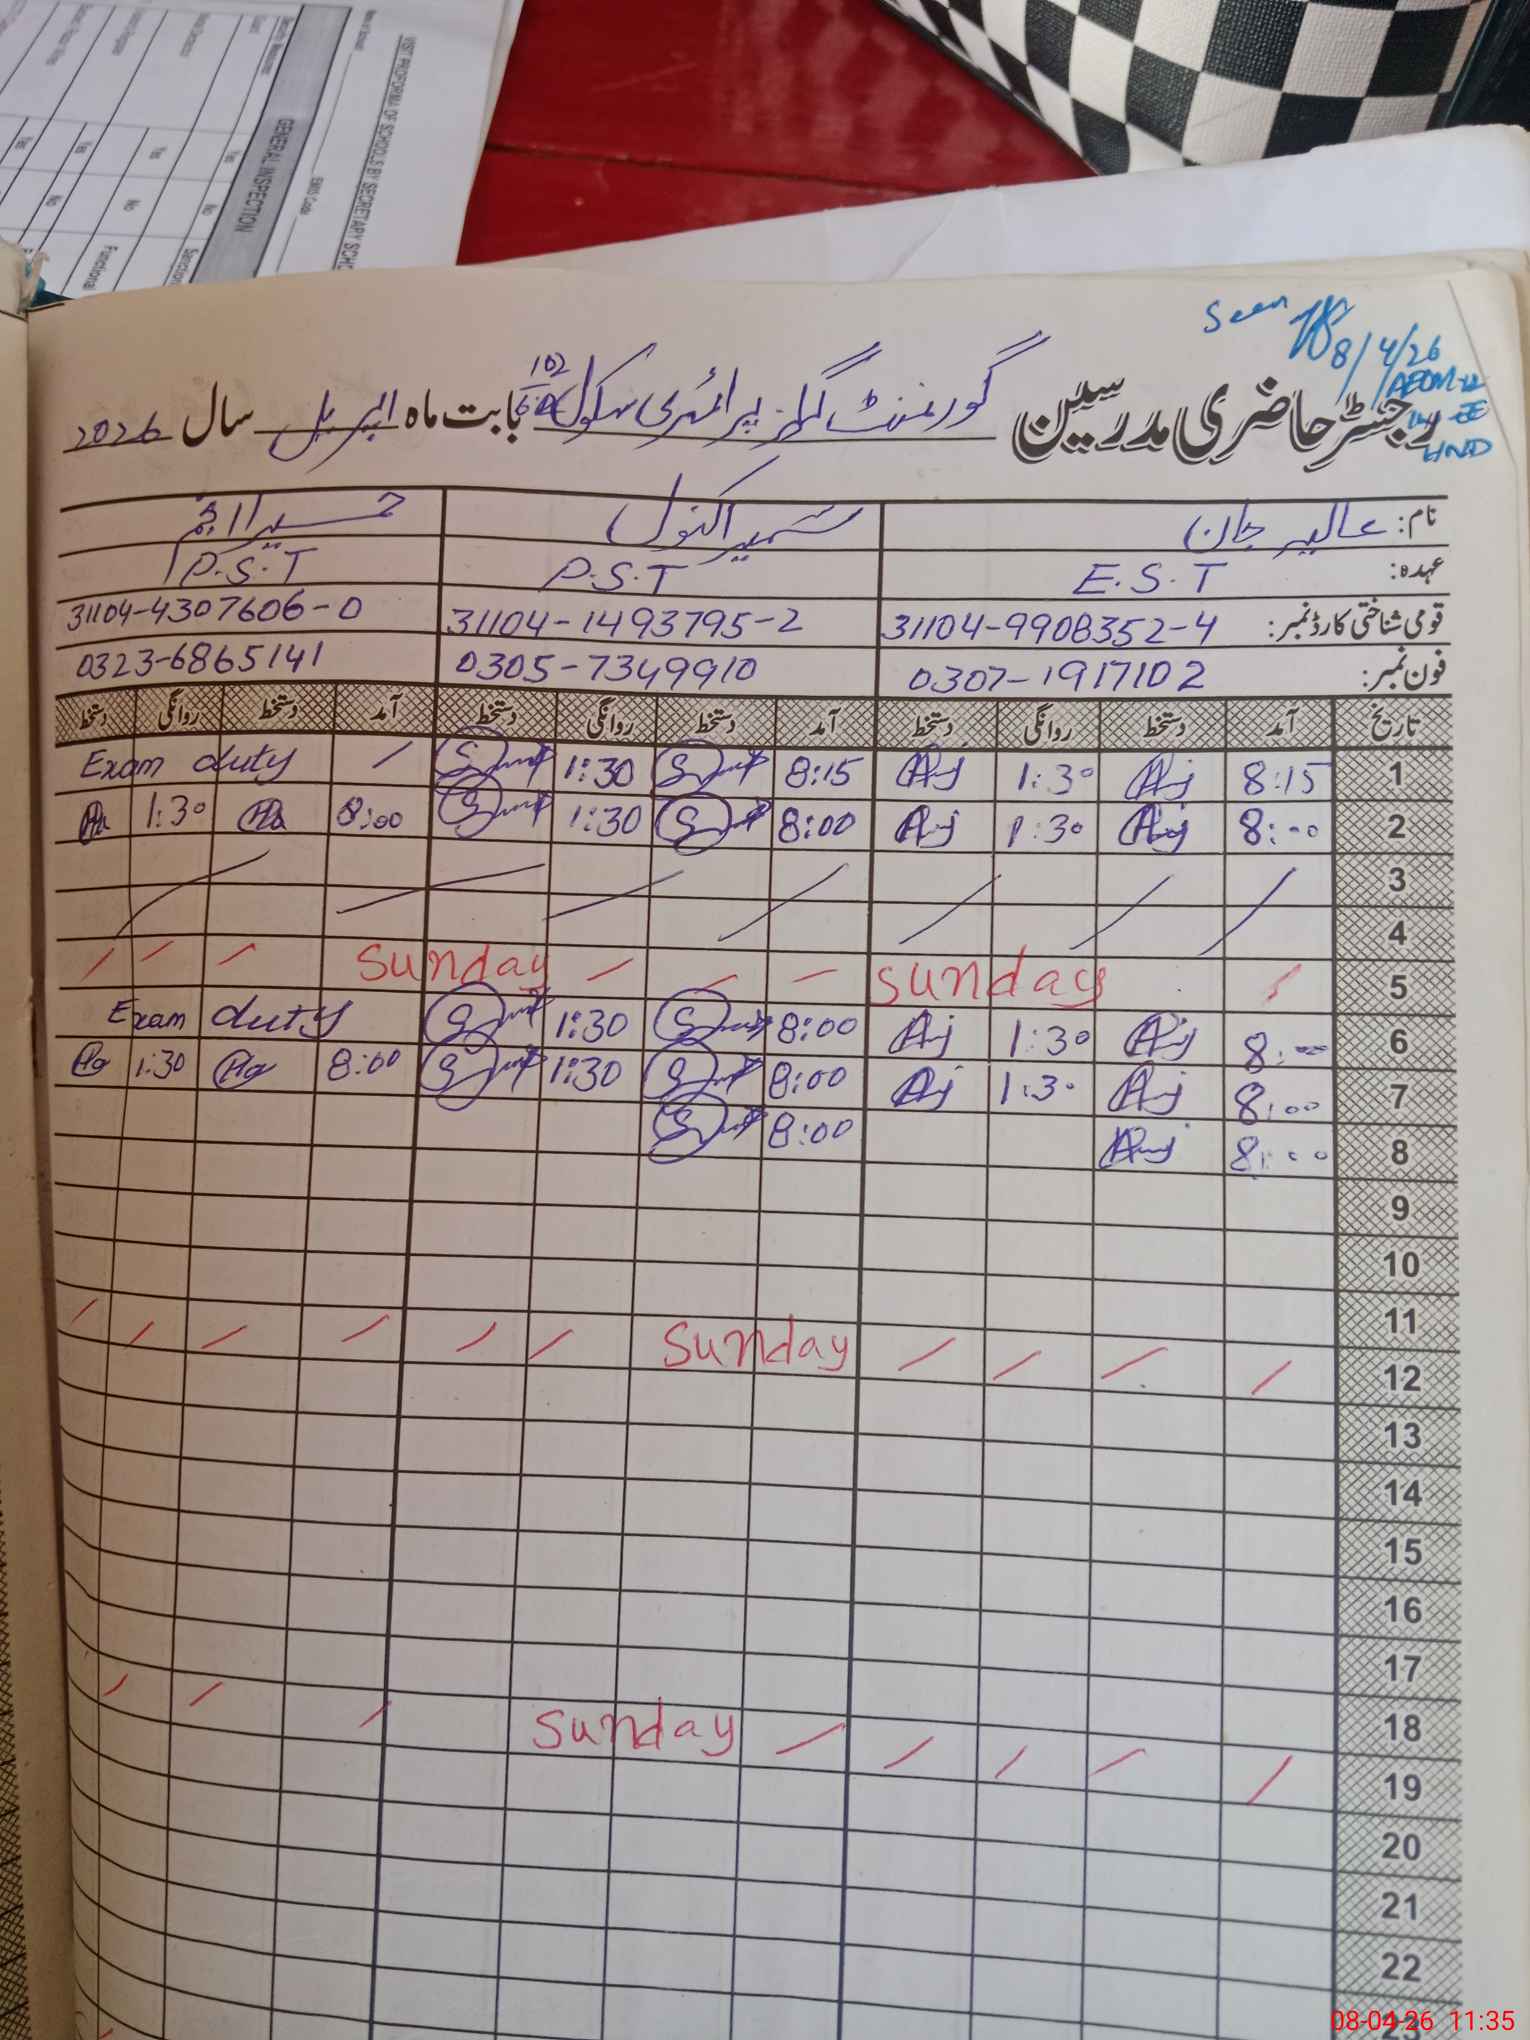 VISIT PROFORMA OF SCHOOLS BY SECRETARY SCHO
EMIS Code
GENERAL INSPECTION
Yes No
Functional
Seen
8/4/26
AEOM-12
HND
رجسٹر حاضری مدرسین گورنمنٹ گرلز پرائمری سکول 102 بابت ماہ اپریل سال 2026
نام: عالیہ جان شمیرا کنول حمیرا انجم
عہدہ: E.S.T P.S.T P.S.T
قومی شناختی کارڈ نمبر: 31104-9908352-4 31104-1493795-2 31104-4307606-0
فون نمبر: 0307-1917102 0305-7349910 0323-6865141
تاریخ آمد دستخط روانگی دستخط آمد دستخط روانگی دستخط آمد دستخط روانگی دستخط
1 8:15 Aj 1:30 Aj 8:15 1:30 / Exam duty
2 8:00 Aj 1:30 Aj 8:00 1:30 8:00 1:30
3
4
5 Sunday Sunday
6 8:00 Aj 1:30 Aj 8:00 1:30 Exam duty
7 8:00 Aj 1:30 Aj 8:00 1:30 8:00 1:30
8 8:00 Aj 8:00
9
10
11
12 Sunday
13
14
15
16
17
18
19 Sunday
20
21
22
08-04-26 11:35